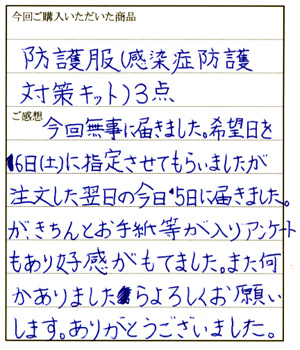 今回ご購入いただいた商品
防護服(感染症防護
対策キット)3点
ご感想
今回無事に届きました。希望日を
16日(土)に指定させてもらいましたが
注文した翌日の今日15日に届きました。
がきちんとお手紙等が入りアンケート
もあり好感がもてました。また何
かありましたらよろしくお願い
します。ありがとうございました。